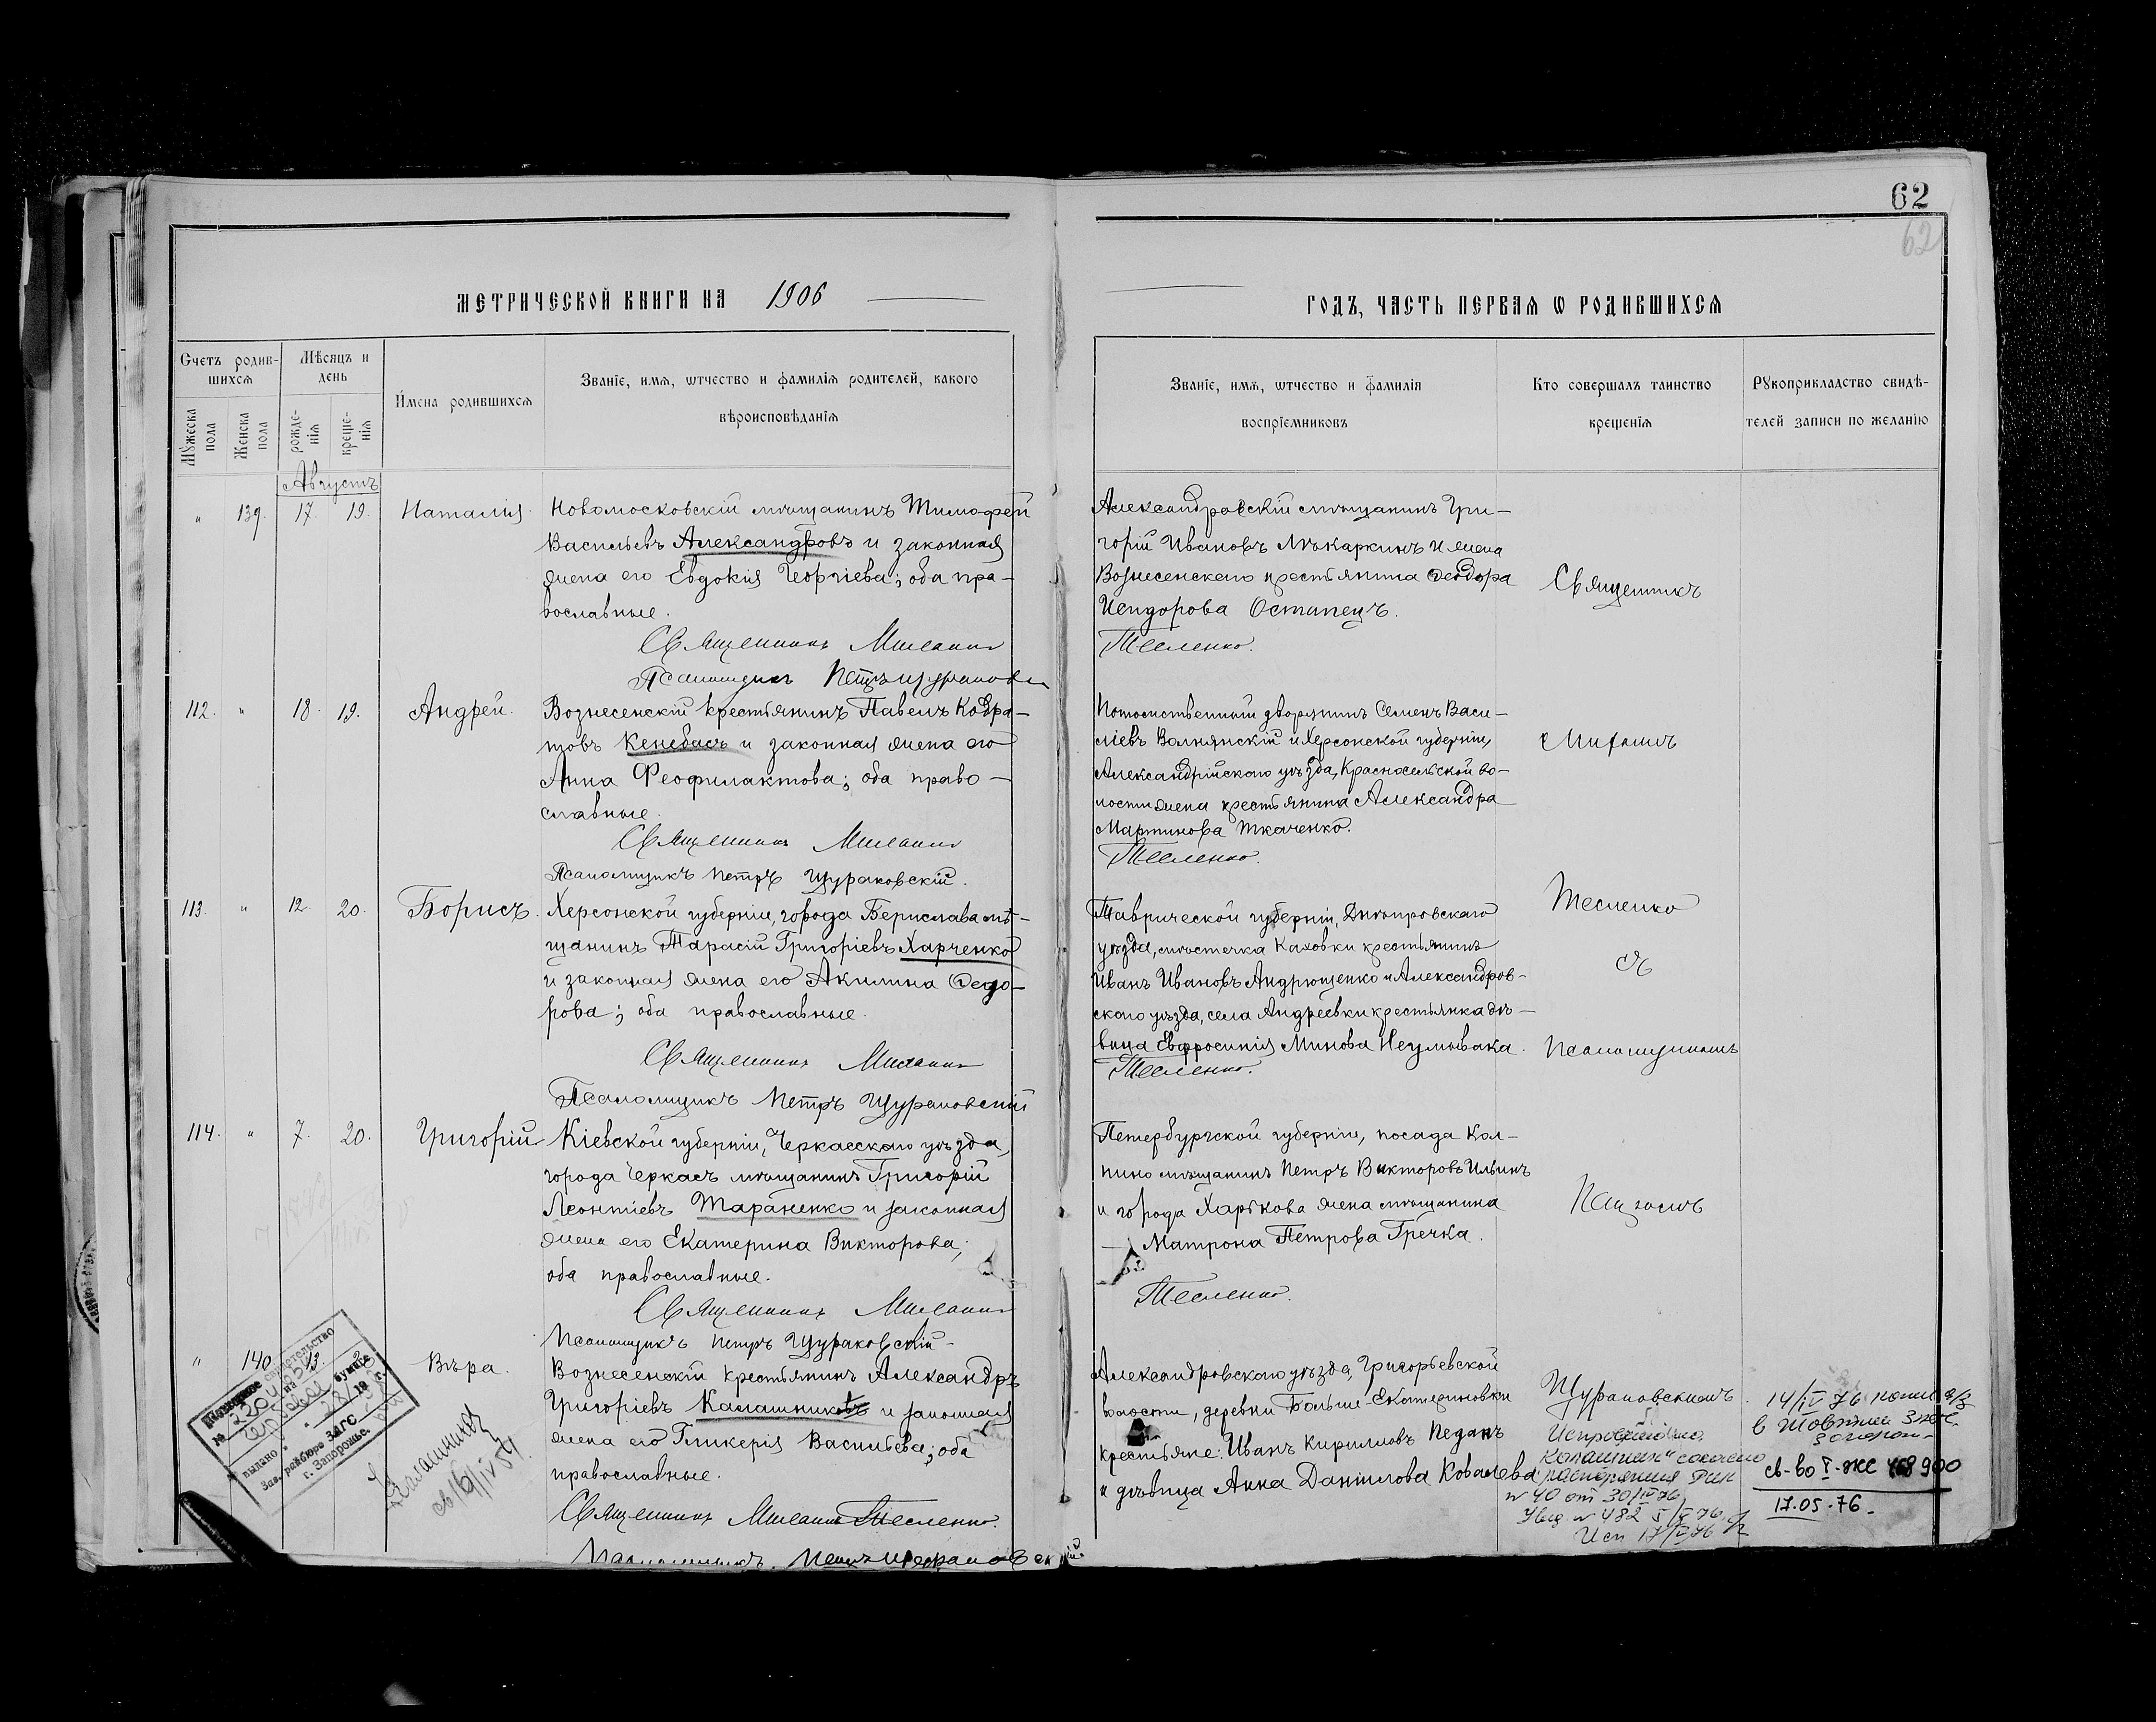 62
62
МЕТРИЧЕСКОЙ КНИГИ НА 1906
ГОДЪ, ЧАСТЬ ПЕРВАѦ Ѡ РОДИВШИХСѦ
Счетъ родив-
шихсѧ
Мѣсяцъ и
день
Мꙋжеска
пола
Женска
пола
рожде-
нїѧ
креще-
нїѧ
Имена родившихсѧ
Званїе, имѧ, ѡтчество и фамилїѧ родителей, какого
вѣроисповѣданїѧ
Званїе, имѧ, ѡтчество и фамилїѧ
воспрїемниковъ
Кто совершалъ таинство
крещенїѧ
Рꙋкоприкладство свидѣ-
телей записи по желанїю
Августъ
" 139. 17. 19. Наталія
Новомосковскій мѣщанинъ Тимофей
Васильевъ Александровъ и законная
жена его Евдокія Георгіева; оба пра-
вославные.
Священникъ
Псаломщикъ Петръ Щураковскій
Александровскій мѣщанинъ Гри-
горій Ивановъ Лѣкаркинъ и жена
Вознесенскаго крестьянина Ѳеодора
Исидорова Остапецъ.
Тесленко.
Священникъ
112. " 18. 19. Андрей.
Вознесенскій крестьянинъ Павелъ Кодра-
товъ Кенебасъ и законная жена его
Анна Феофилактова; оба право-
славные.
Священникъ
Псаломщикъ Петръ Щураковскій.
Потомственный дворянинъ Семенъ Васи-
ліевъ Волнянскій и Херсонской губерніи,
Александрійскаго уѣзда, Красносельской во-
лости жена крестьянина Александра
Мартинова Ткаченко.
Тесленко.
113. " 12. 20. Борисъ.
Херсонской губерніи, города Берислава мѣ-
щанинъ Тарасій Григоріевъ Харченко
и законная жена его Акилина Ѳедо-
рова; оба православные.
Священникъ
Псаломщикъ Петръ Щураковскій
Таврической губерніи, Днѣпровскаго
уѣзда, мѣстечка Каховки крестьянинъ
Иванъ Ивановъ Андрющенко и Александров-
скаго уѣзда, села Андреевки крестьянка дѣ-
вица Евфросинія Минова Неумывака.
Тесленко.
Тесленко
съ
Псаломщикомъ
114. " 7. 20. Григорій
Кіевской губерніи, Черкасскаго уѣзда,
города Черкасъ мѣщанинъ Григорій
Леонтіевъ Тараненко и законная
жена его Екатерина Викторова;
оба православные.
Священникъ
Псаломщикъ Петръ Щураковскій
Петербургской губерніи, посада Кол-
пино мѣщанинъ Петръ Викторовъ Ильинъ
и города Харькова жена мѣщанина
Матрона Петрова Гречка.
Тесленко.
" 140 13. Вѣра.
Вознесенскій крестьянинъ Александръ
Григоріевъ Калашниковъ и законная
жена его Гликерія Васильева; оба
православные.
Священникъ Тесленко.
Псаломщикъ Петръ Щураковскій
Александровскаго уѣзда, Григорьевской
волости, деревни Больше-Екатериновки
крестьяне: Иванъ Кирилловъ Педанъ
и дѣвица Анна Данилова Ковалева
Щураковскимъ.
Исправлено
№ 40 от 30/IV 76
Исп 17/V 76
14/IV 76
св-во I-ЖС 468900
17.05.76.
свидетельство
№
выдано
бумаге
Зав. райбюро ЗАГС
г. Запорожье.
Калашник
св 16/IV 54